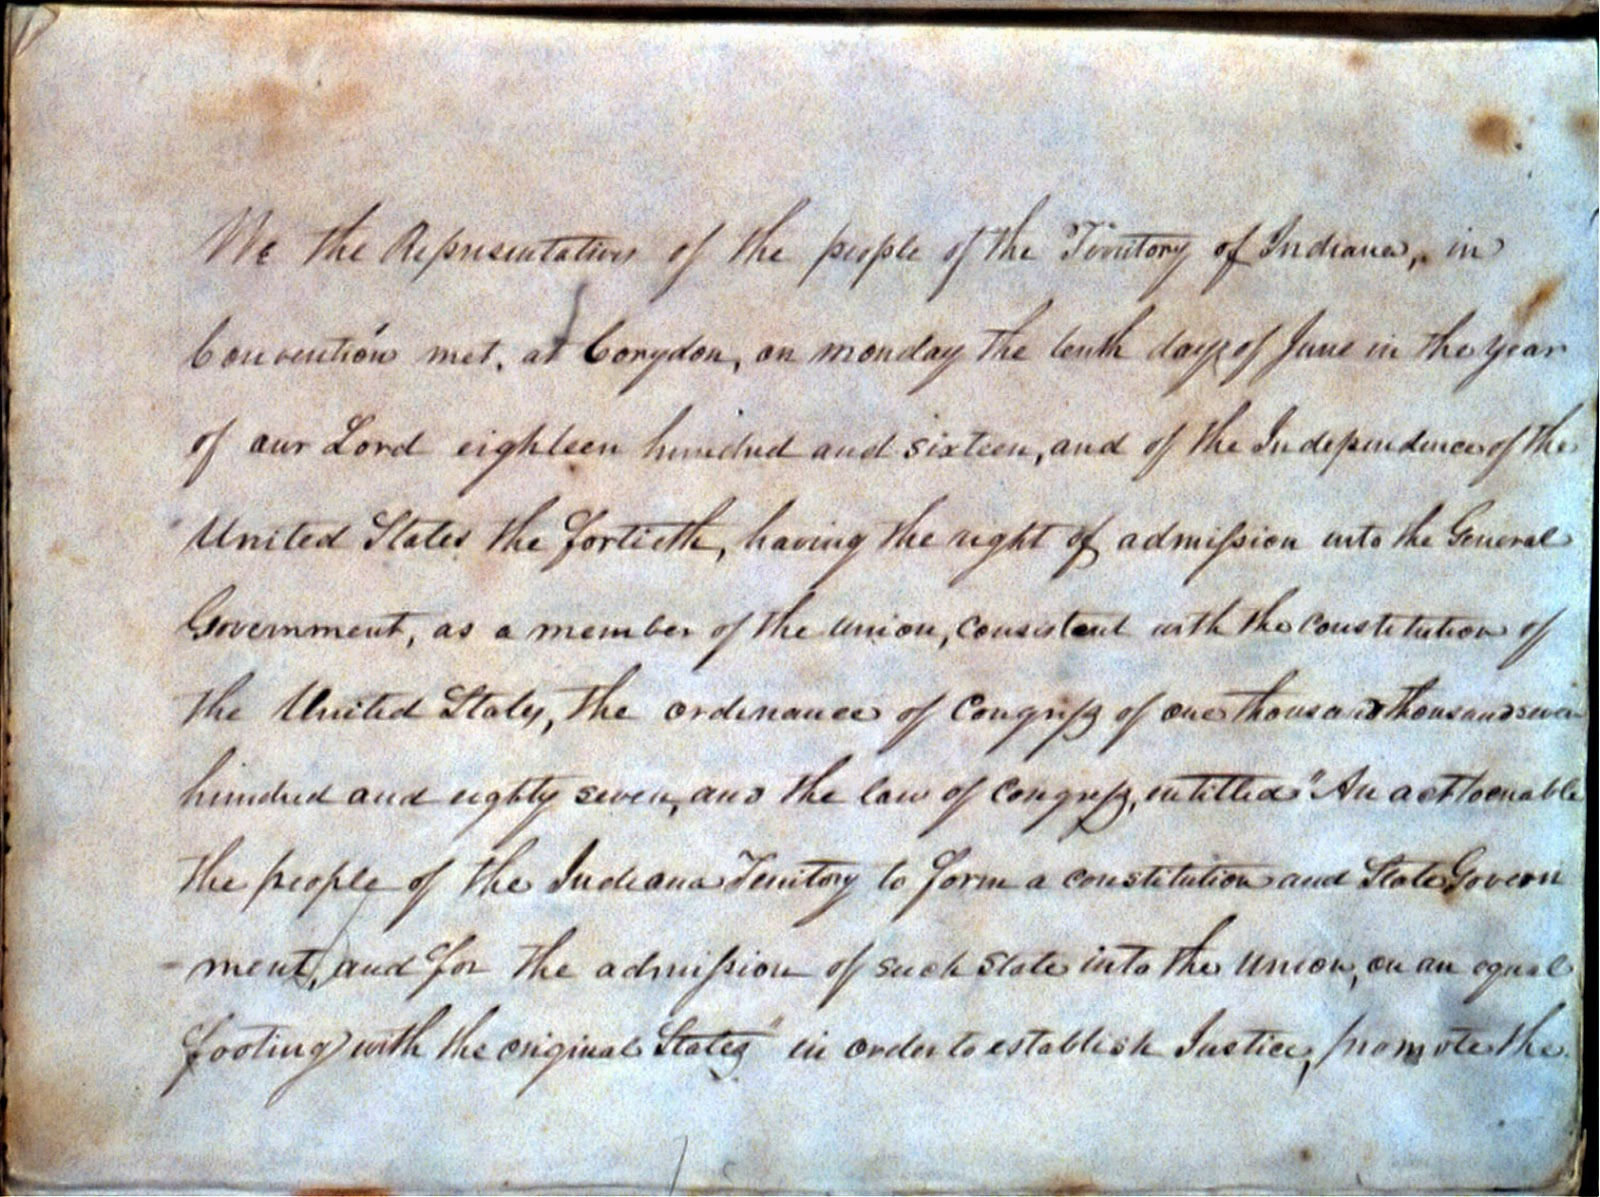 We the Representatives of the people of the Territory of Indiana, in
Convention met, at Corydon, on monday the tenth day of June in the year
of our Lord eighteen hundred and sixteen, and of the Independence of the
United States the fortieth, having the right of admission into the General
Government, as a member of the union, consistent with the constitution of
the United States, the ordinance of Congress of one thousand thousand seven
hundred and eighty seven, and the law of Congress, entitled "An act to enable
the people of the Indiana Territory to form a constitution and State Govern
-ment, and for the admission of such state into the union, on an equal
footing with the original States" in order to establish Justice, promote the